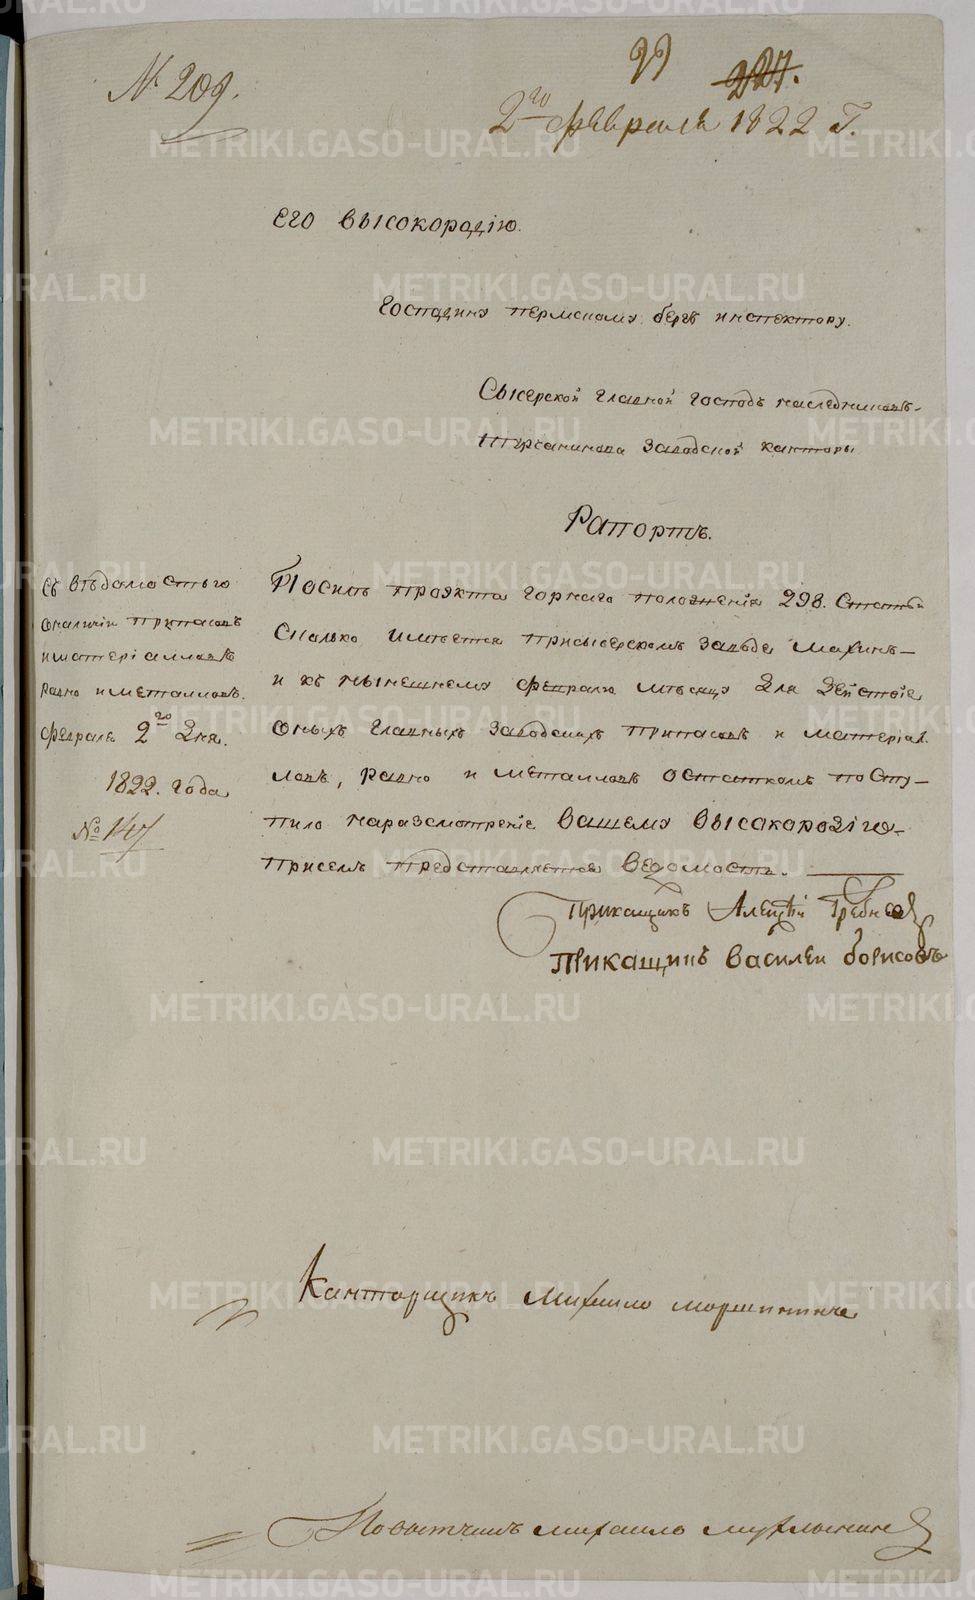 № 209.
99 227.
2го февраля 1822 Г.
Его высокородію.
Господину пермскому бергъ инспектору.
Сысерской главной господъ наследниковъ
Турчанинова заводской канторы
Рапортъ.
Съ вѣдомостью
оналичіи припасовъ
иматеріалловъ
равно иметалловъ.
февраля 2го дня.
1822. года
№ 147
Посилѣ проэкта горнаго положенія 298. Статьи
Сколько имѣется присысерскомъ заводе махинъ
и къ нынешнему февралю мѣсяцу для действіе
оныхъ главныхъ заводскихъ припасовъ и матеріал
ловъ, равно и металловъ остаткомъ посту-
пило наразсмотреніе вашему высокородію
присемъ представляется ведомость.
Прикащикъ Алексѣй Гребнев
Прикащикъ Василеи Борисовъ
Канторщикъ Михаило
Повытчикъ михаило
METRIKI.GASO-URAL.RU